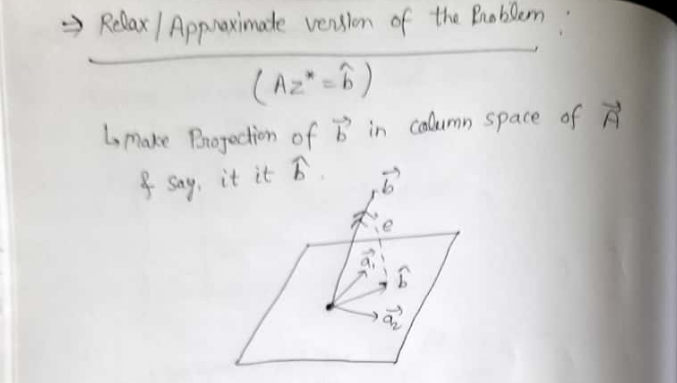 ⇒ Relax / Approximate version of the Problem :
( Az* = b̂ )
↳ make Projection of b⃗ in column space of A⃗
& say, it it b̂ .
b⃗
e
a⃗₁
b̂
a⃗₂